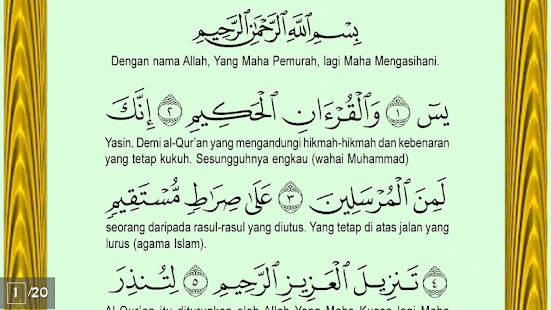 بِسْمِ ٱللَّهِ ٱلرَّحْمَٰنِ ٱلرَّحِيمِ
Dengan nama Allah, Yang Maha Pemurah, lagi Maha Mengasihani.
يسٓ ١ وَٱلْقُرْءَانِ ٱلْحَكِيمِ ٢ إِنَّكَ
Yasin. Demi al-Qur'an yang mengandungi hikmah-hikmah dan kebenaran
yang tetap kukuh. Sesungguhnya engkau (wahai Muhammad)
لَمِنَ ٱلْمُرْسَلِينَ ٣ عَلَىٰ صِرَٰطٍ مُّسْتَقِيمٍ
seorang daripada rasul-rasul yang diutus. Yang tetap di atas jalan yang
lurus (agama Islam).
٤ تَنزِيلَ ٱلْعَزِيزِ ٱلرَّحِيمِ ٥ لِتُنذِرَ
Al-Qur'an itu diturunkan oleh Allah Yang Maha Kuasa lagi Maha
1 /20